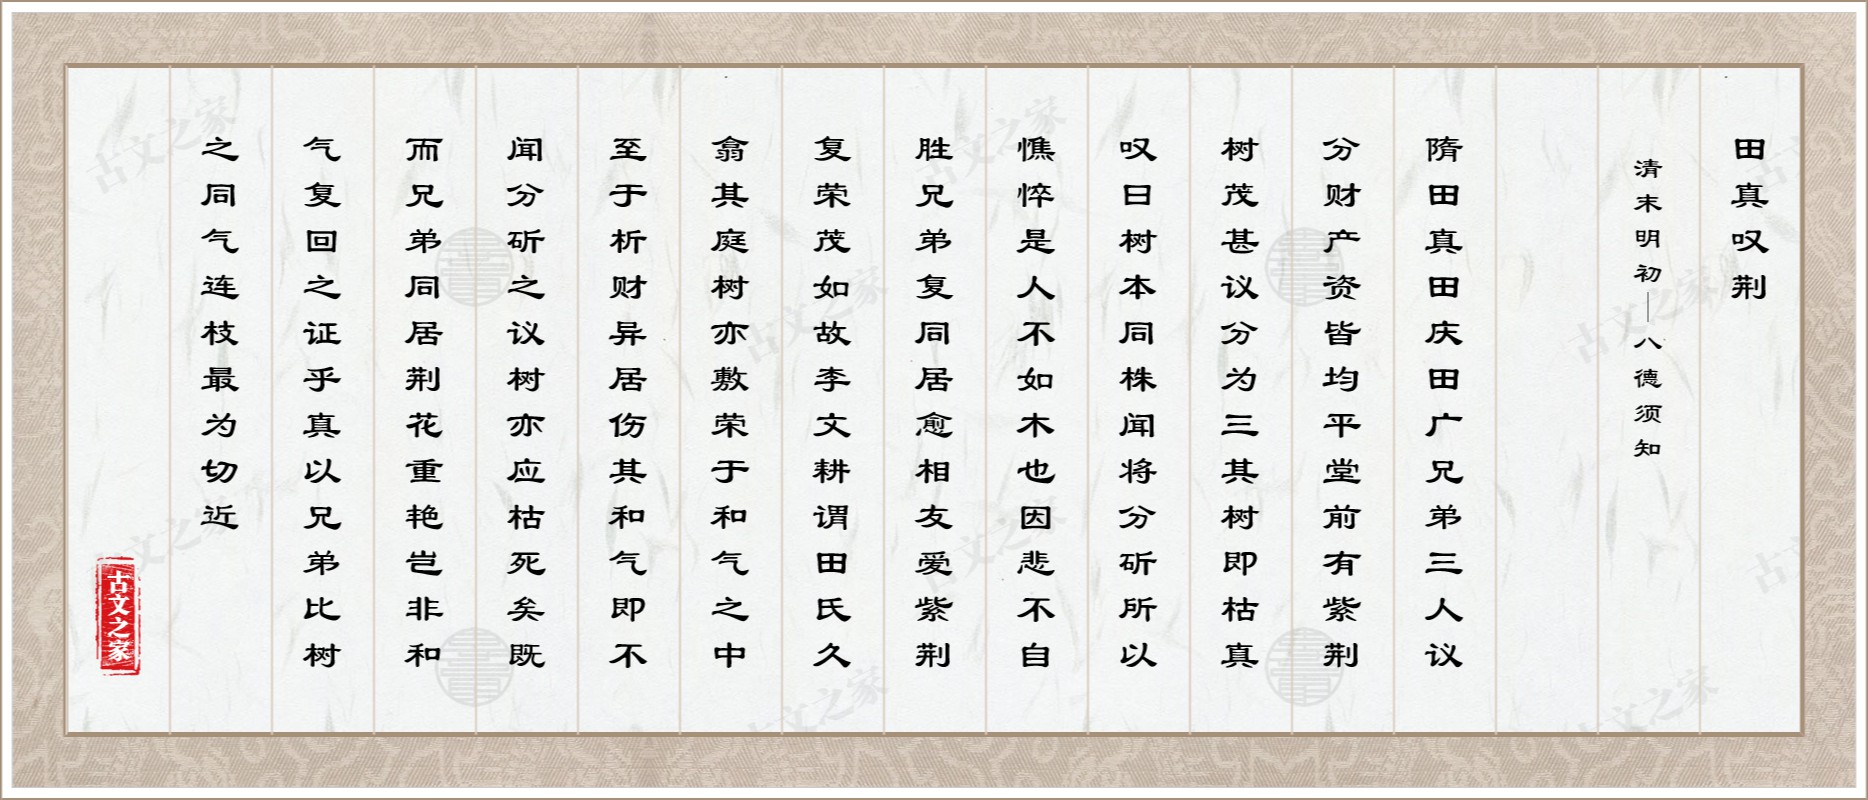 田真叹荆
清末明初——八德须知
隋田真田庆田广兄弟三人议
分财产资皆均平堂前有紫荆
树茂甚议分为三其树即枯真
叹曰树本同株闻将分斫所以
憔悴是人不如木也因悲不自
胜兄弟复同居愈相友爱紫荆
复荣茂如故李文耕谓田氏久
翕其庭树亦敷荣于和气之中
至于析财异居伤其和气即不
闻分斫之议树亦应枯死矣既
而兄弟同居荆花重艳岂非和
气复回之证乎真以兄弟比树
之同气连枝最为切近
古文之家